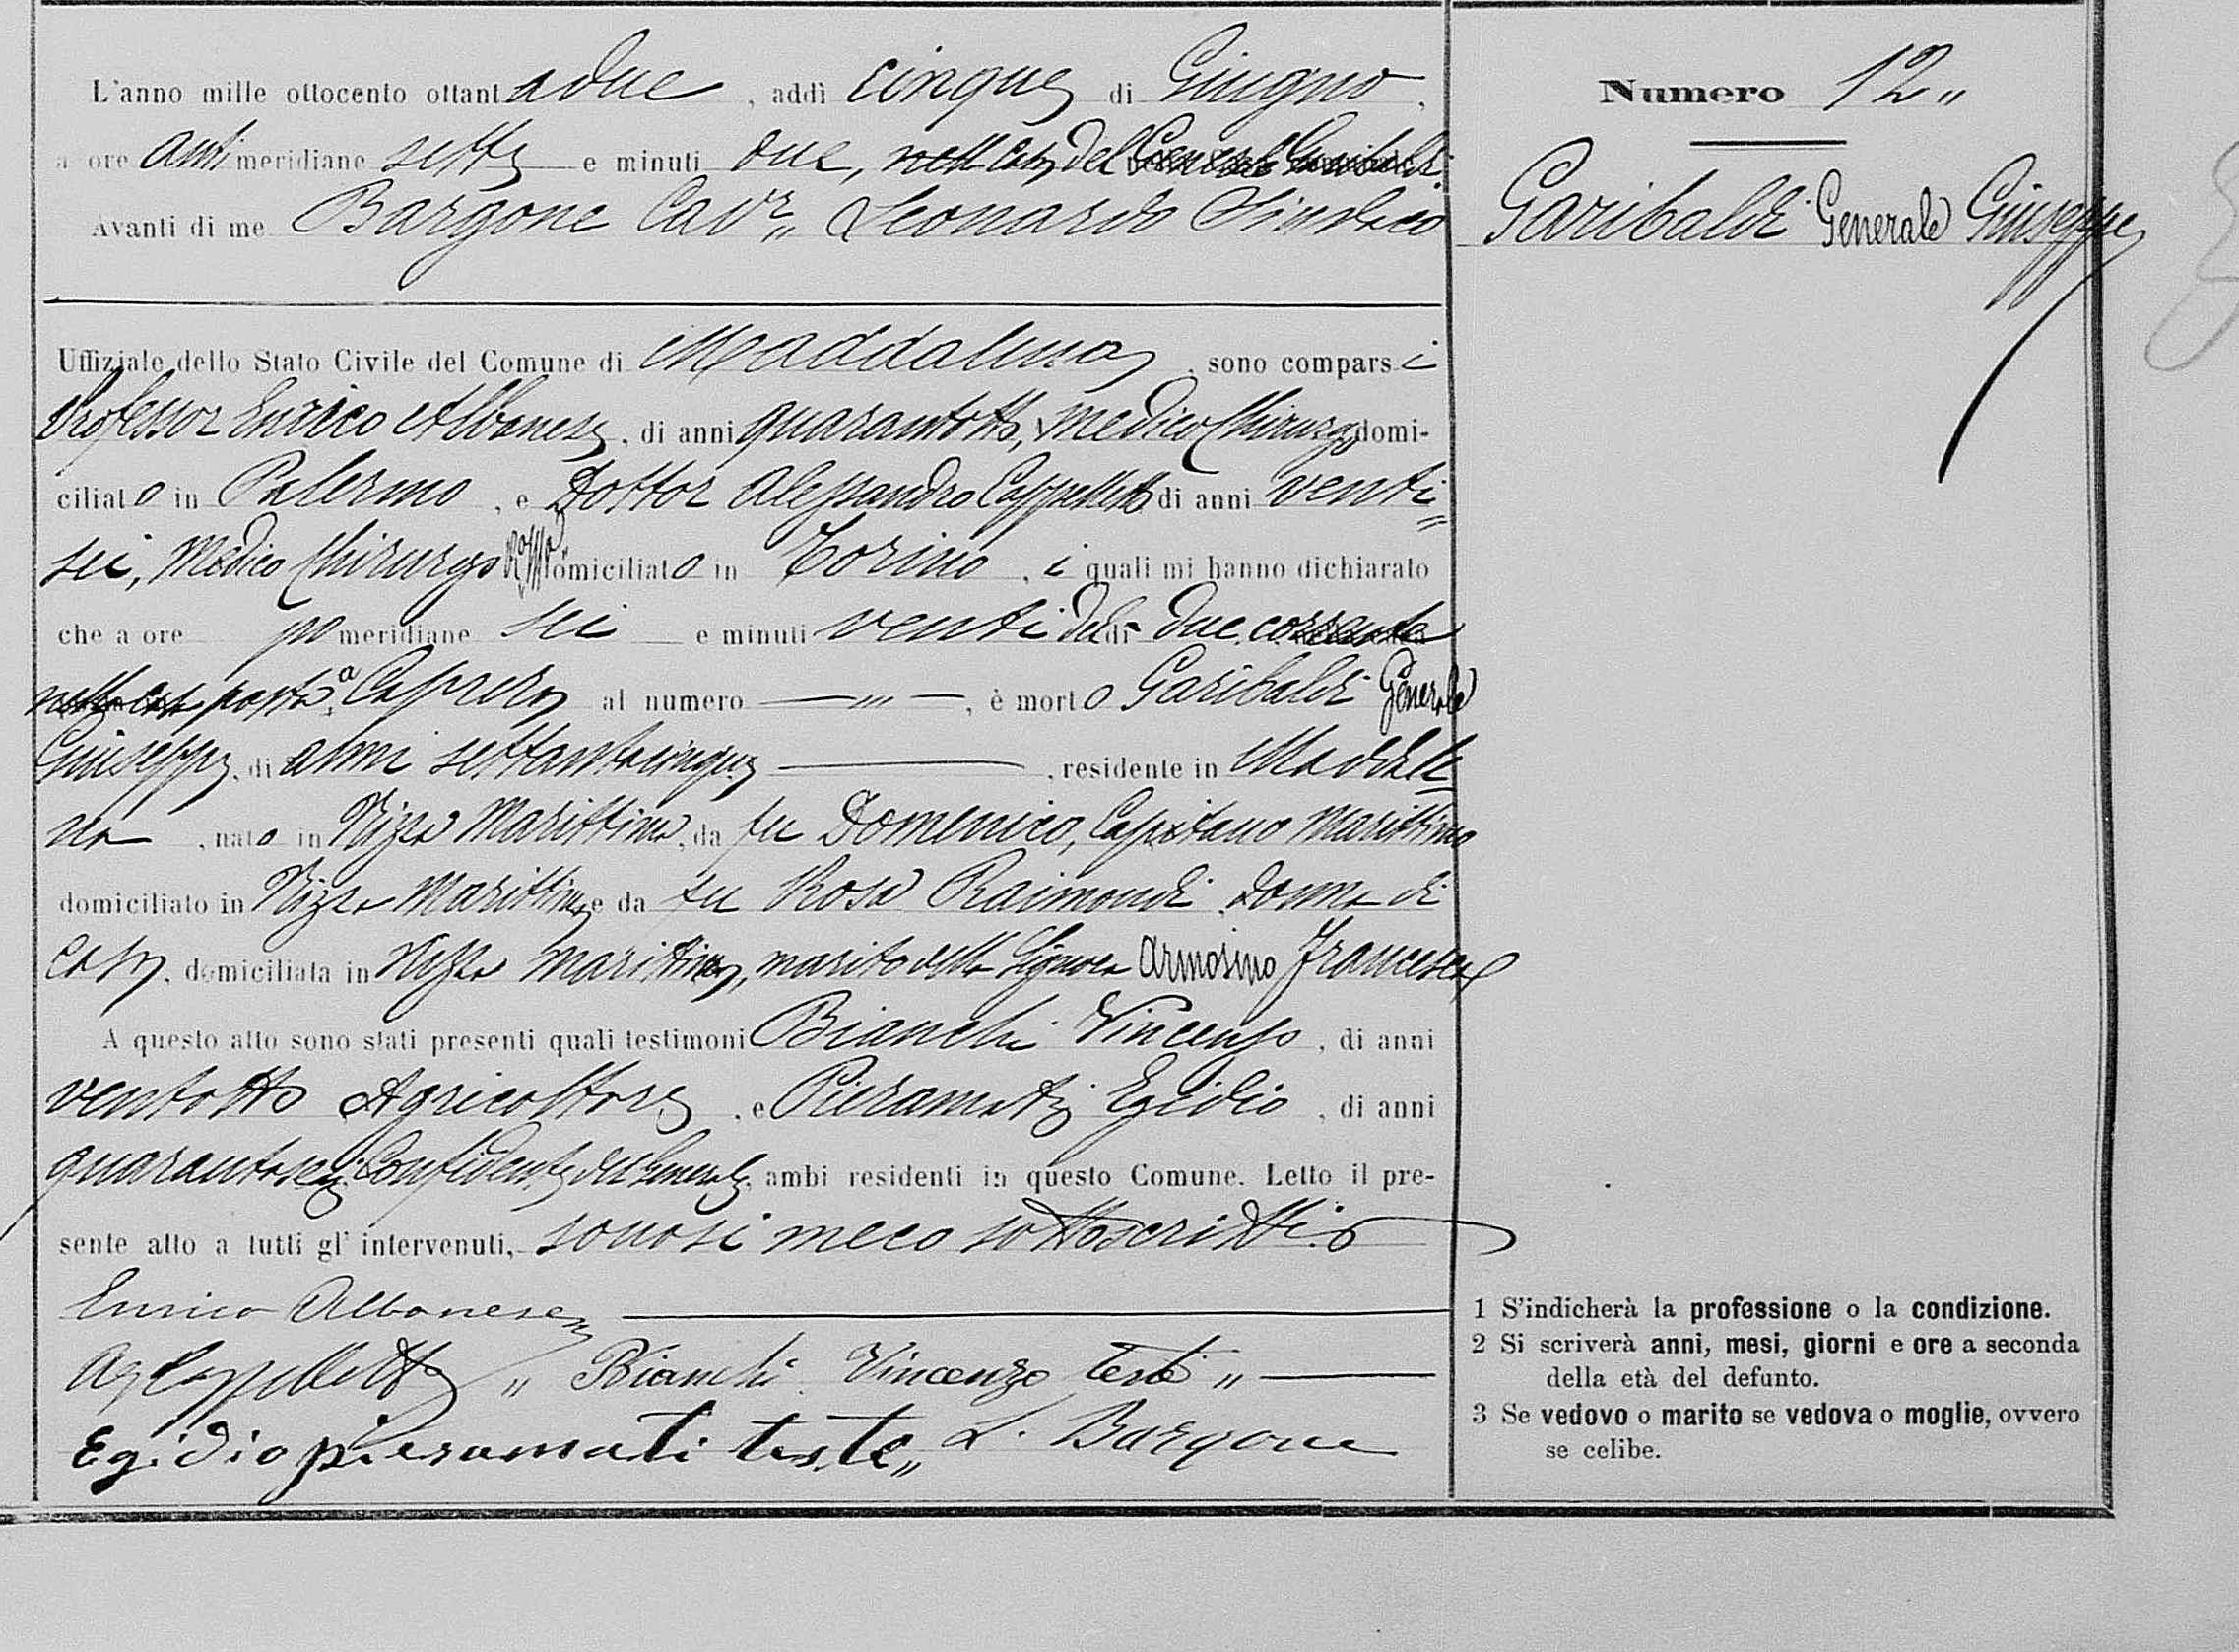 L'anno mille ottocento ottantadue, addì cinque di Giugno,
a ore antimeridiane sette e minuti due, nella Casa del Generale Garibaldi.
Avanti di me Bargone Cavr.. Leonardo Sindaco
Uffiziale dello Stato Civile del Comune di Maddalena, sono comparsi
Professor Enrico Albanese, di anni quarantotto, Medico Chirurgo domi-
ciliato in Palermo, e Dottor Alessandro Cappelletti di anni venti=
sei, Medico Chirurgo domiciliato in Torino, i quali mi hanno dichiarato
che a ore pomeridiane sei e minuti venti del dì due corrente
nella casa posta a Caprera al numero —"—, è morto Garibaldi Generale
Giuseppe, di anni settantacinque, residente in Maddale
na, nato in Nizza Marittima, da fu Domenico, Capitano Marittimo
domiciliato in Nizza Marittima e da fu Rosa Raimondi donna di
casa, domiciliata in Nizza Marittima, marito della Signora Armosino Francesca
A questo atto sono stati presenti quali testimoni Bianchi Vincenzo, di anni
ventotto Agricoltore, e Pieramati Egidio, di anni
quarantasei Confidente del Generale, ambi residenti in questo Comune. Letto il pre-
sente atto a tutti gl'intervenuti, sonosi meco sottoscritti.
Enrico Albanese
Cappelletti " Bianchi Vincenzo teste "
Egidio pieramati teste" L. Bargone
Numero 12"
Garibaldi Generale Giuseppe
1 S'indicherà la professione o la condizione.
2 Si scriverà anni, mesi, giorni e ore a seconda
della età del defunto.
3 Se vedovo o marito se vedova o moglie, ovvero
se celibe.